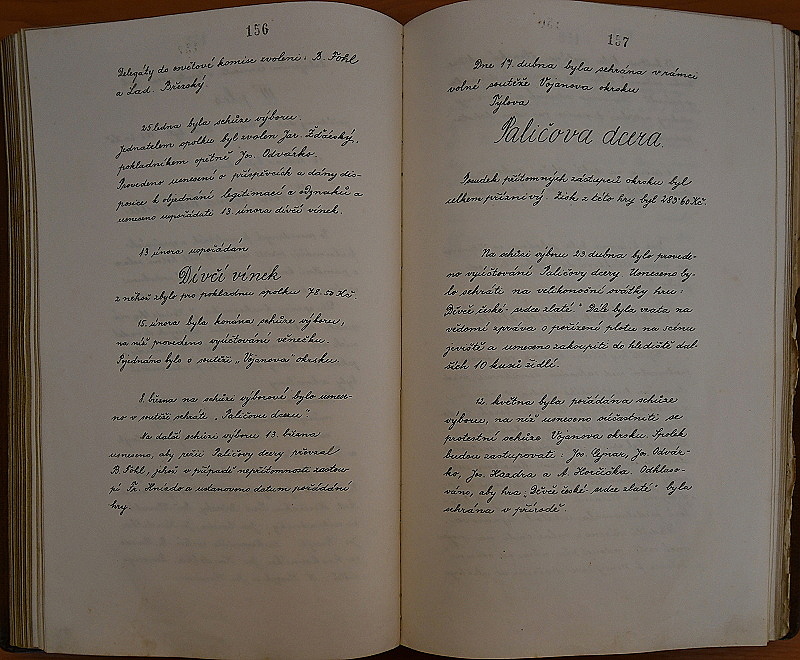 156
Delegáty do osvětové komise zvoleni: B. Föhl
a Lad. Březský
25 ledna byla schůze výboru.
Jednatelem spolku byl zvolen Jar. Žďárský,
pokladníkem opětně Jos. Odvárko.
Provedeno usnesení o příspěvcích a dány dis-
posice k objednání legitimací a odznaků a
usneseno uspořádati 13. února dívčí vínek.
13 února uspořádán
Dívčí vínek
z něhož zbylo pro pokladnu spolku 78.50 Kč.
15. února byla konána schůze výboru,
na níž provedeno vyúčtování věnečku.
Pojednáno bylo o soutěži „Vojanova" okrsku.
8. března na schůzi výborové bylo usnese-
no v soutěži sehráti „Paličovu dceru"
Na další schůzi výboru 13. března
usneseno, aby režii Paličovy dcery převzal
B. Föhl, jehož v případě nepřítomnosti zastou-
pí Fr. Hniedo a ustanoveno datum pořádání
hry.
157
Dne 17. dubna byla sehrána v rámci
volné soutěže Vojanova okrsku
Tylova
Paličova dcera.
Posudek přítomných zástupců okrsku byl
celkem příznivý. Zisk z této hry byl 285.60 Kč.
Na schůzi výboru 23. dubna bylo provede-
no vyúčtování Paličovy dcery. Usneseno by-
lo sehráti na velikonoční svátky hru:
Děvče české - srdce zlaté." Dále byla vzata na
vědomí zpráva o pořízení plotu na scénu
jeviště a usneseno zakoupiti do hlediště dal-
ších 10 kusů židlí.
12. května byla pořádána schůze
výboru, na níž usneseno súčastniti se
protestní schůze Vojanova okrsku. Spolek
budou zastupovati: Jos. Cyprar, Jos. Odvár-
ko, Jos. Hazdra a A. Horčička. Odhlaso-
váno, aby hra „Děvče české srdce zlaté" byla
sehrána v přírodě.